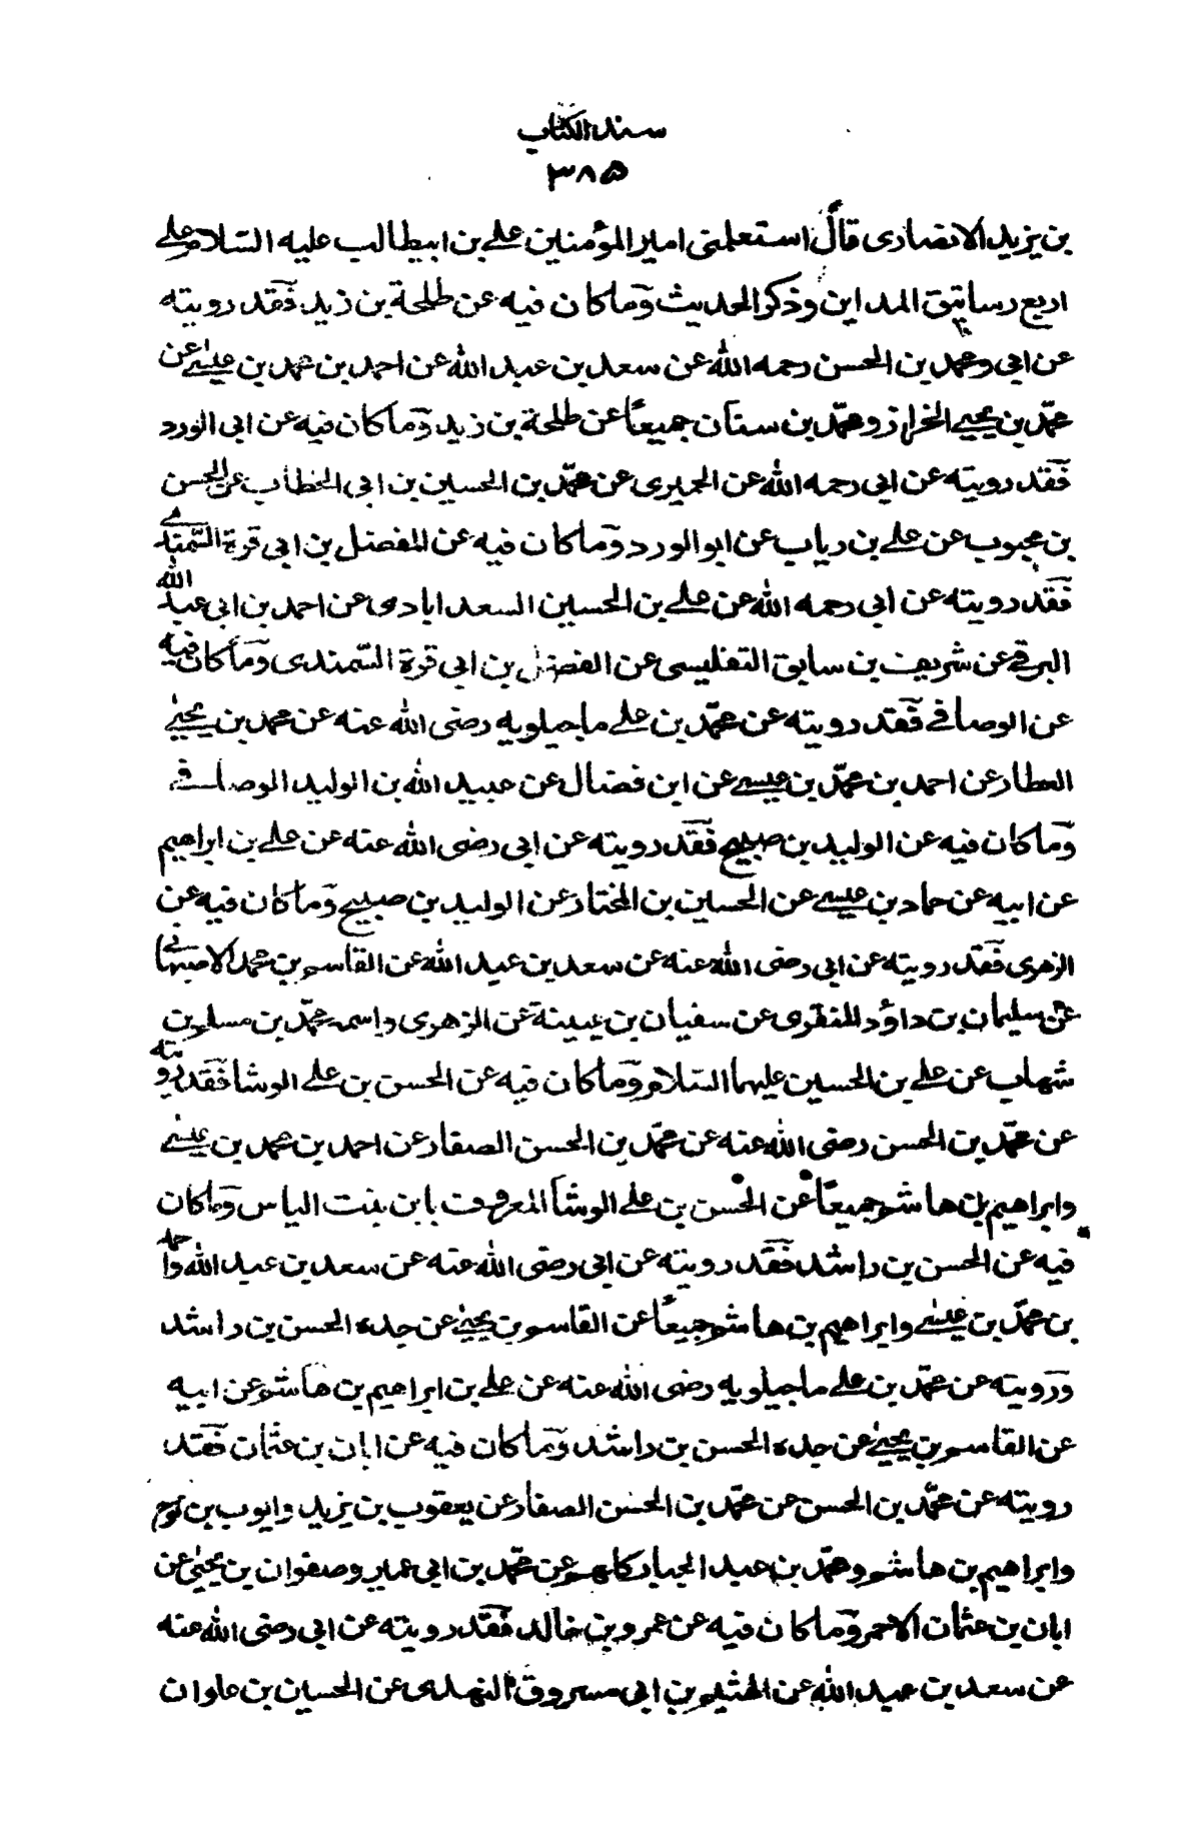 سند الكتاب
٣٨٥
بن يزيد الانصارى قال استعملنى امير المؤمنين على بن ابيطالب عليه السلام على
اربع رساتيق المداين وذكر الحديث وما كان فيه عن طلحة بن زيد فقد رويته
عن ابى ومحمد بن الحسن رحمه الله عن سعد بن عبد الله عن احمد بن محمد بن عيسى عن
محمّد بن يحيى الخراز ومحمّد بن سنان جميعًا عن طلحة بن زيد وما كان فيه عن ابى الورد
فقد رويته عن ابى رحمه الله عن الحميرى عن محمّد بن الحسين بن ابى الخطاب عن الحسن
بن محبوب عن على بن رياب عن ابو الورد وما كان فيه عن المفضل بن ابى قرة السّمندى
فقد رويته عن ابى رحمه الله عن على بن الحسين السعد ابادى عن احمد بن ابى عبد الله
البرقى عن شريف بن سابق التفليسى عن الفضل بن ابى قرة السّمندى وما كان فيه
عن الوصافى فقد رويته عن محمّد بن على ماجيلويه رضى الله عنه عن محمد بن يحيى
العطار عن احمد بن محمّد بن عيسى عن ابن فضال عن عبيد الله بن الوليد الوصافى
وما كان فيه عن الوليد بن صبيح فقد رويته عن ابى رضى الله عنه عن على بن ابراهيم
عن ابيه عن حماد بن عيسى عن الحسين بن المختار عن الوليد بن صبيح وما كان فيه عن
الزهرى فقد رويته عن ابى رضى الله عنه عن سعد بن عبد الله عن القاسم بن محمد الاصبهانى
عن سليمان بن داؤد المنقرى عن سفيان بن عيينة عن الزهرى واسمه محمّد بن مسلم بن
شهاب عن على بن الحسين عليهما السلام وما كان فيه عن الحسن بن على الوشا فقد رويته
عن محمّد بن الحسن رضى الله عنه عن محمّد بن الحسن الصفار عن احمد بن محمد بن عيسى
وابراهيم بن هاشم جميعًا عن الحسن بن على الوشا المعروف بابن بنت الياس وما كان
فيه عن الحسن بن راشد فقد رويته عن ابى رضى الله عنه عن سعد بن عبد الله واحمد
بن محمّد بن عيسى وابراهيم بن هاشم جميعًا عن القاسم بن يحيى عن جده الحسن بن راشد
ورويته عن محمّد بن على ماجيلويه رضى الله عنه عن على بن ابراهيم بن هاشم عن ابيه
عن القاسم بن يحيى عن جده الحسن بن راشد وما كان فيه عن ابان بن عثمان فقد
رويته عن محمّد بن الحسن عن محمّد بن الحسن الصفار عن يعقوب بن يزيد وايوب بن نوح
وابراهيم بن هاشم ومحمّد بن عبد الجبار كلهم عن محمّد بن ابى عمير وصفوان بن يحيى عن
ابان بن عثمان الاحمر وما كان فيه عن عمرو بن خالد فقد رويته عن ابى رضى الله عنه
عن سعد بن عبد الله عن الهثيم بن ابى مسروق النهدى عن الحسين بن علوان